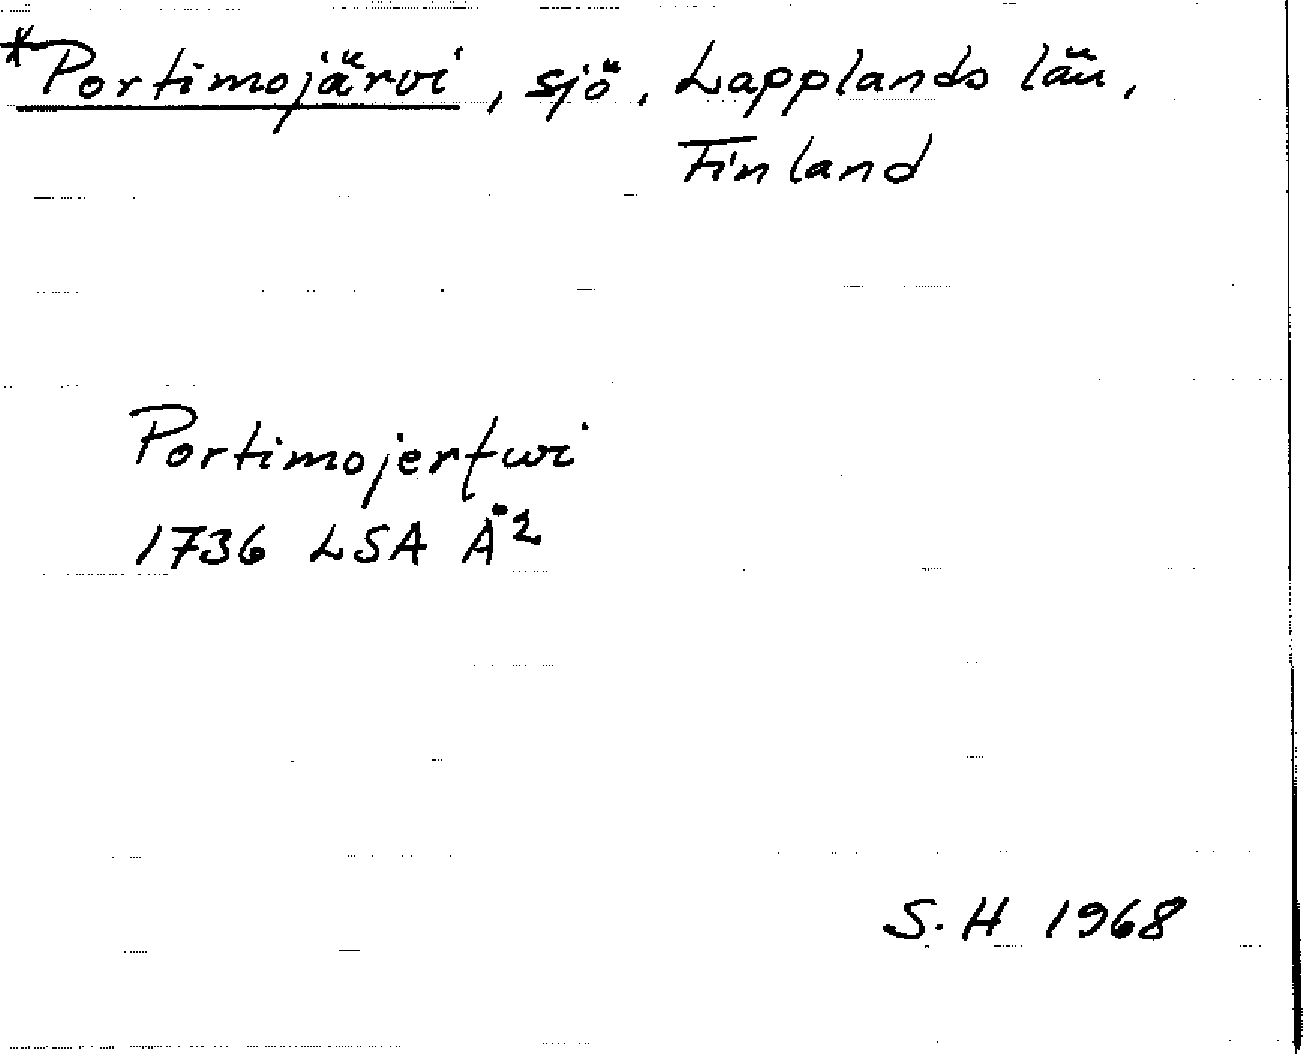 *Portimojärvi, sjö, Lapplands län,
Finland
Portimojerfwi
1736 LSA Å2
S.H 1968